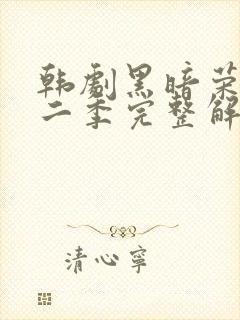 韩劇黑暗荣
二季完整解
清心寧